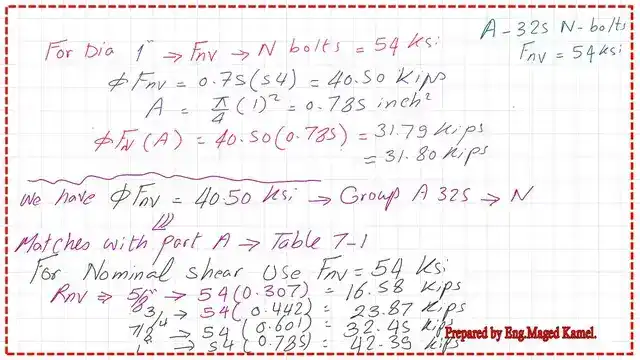 A-325 N-bolts
Fnv = 54 ksi
For Dia 1" → Fnv → N bolts = 54 Ksi
ϕFnv = 0.75(54) = 40.50 Kips
A = π/4 (1)² = 0.785 inch²
ϕFN(A) = 40.50(0.785) = 31.79 Kips
= 31.80 Kips
We have ϕFnv = 40.50 ksi → Group A 325 → N
Matches with part A → Table 7-1
For Nominal shear Use Fnv = 54 Ksi
Rnv ⇒ 5/8" → 54(0.307) = 16.58 Kips
3/4 → 54(0.442) = 23.87 Kips
7/8" → 54(0.601) = 32.45 Kips
1" → 54(0.785) = 42.39 Kips
Prepared by Eng.Maged Kamel.